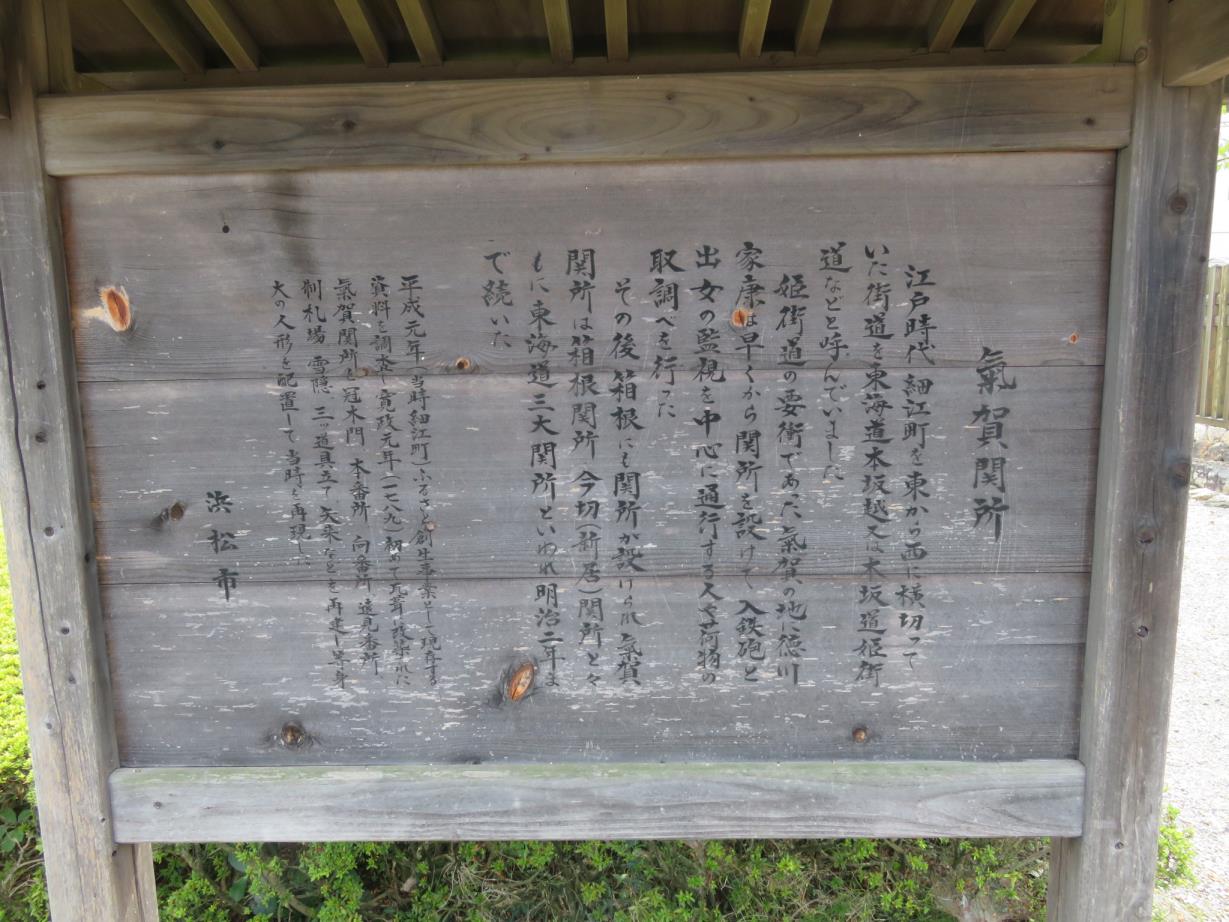 氣賀関所
江戸時代 細江町を東から西に横切って
いた街道を東海道本坂越又は本坂道姫街
道などと呼んでいました
姫街道の要衝であった氣賀の地に徳川
家康は早くから関所を設けて入鉄砲と
出女の監視を中心に通行する人や荷物の
取調べを行った
その後箱根にも関所が設けられ氣賀
関所は箱根関所 今切(新居)関所と々
もに東海道三大関所といわれ明治二年ま
で続いた
平成元年(当時細江町)ふるさと創生事業として現存する
資料を調査し寛政元年(一七八九)初めて瓦葺に改築された
氣賀関所を冠木門 本番所 向番所 遠見番所
制札場 雪隠 三ッ道具立て 矢来などを再建し等身
大の人形を配置して当時を再現し
浜松市